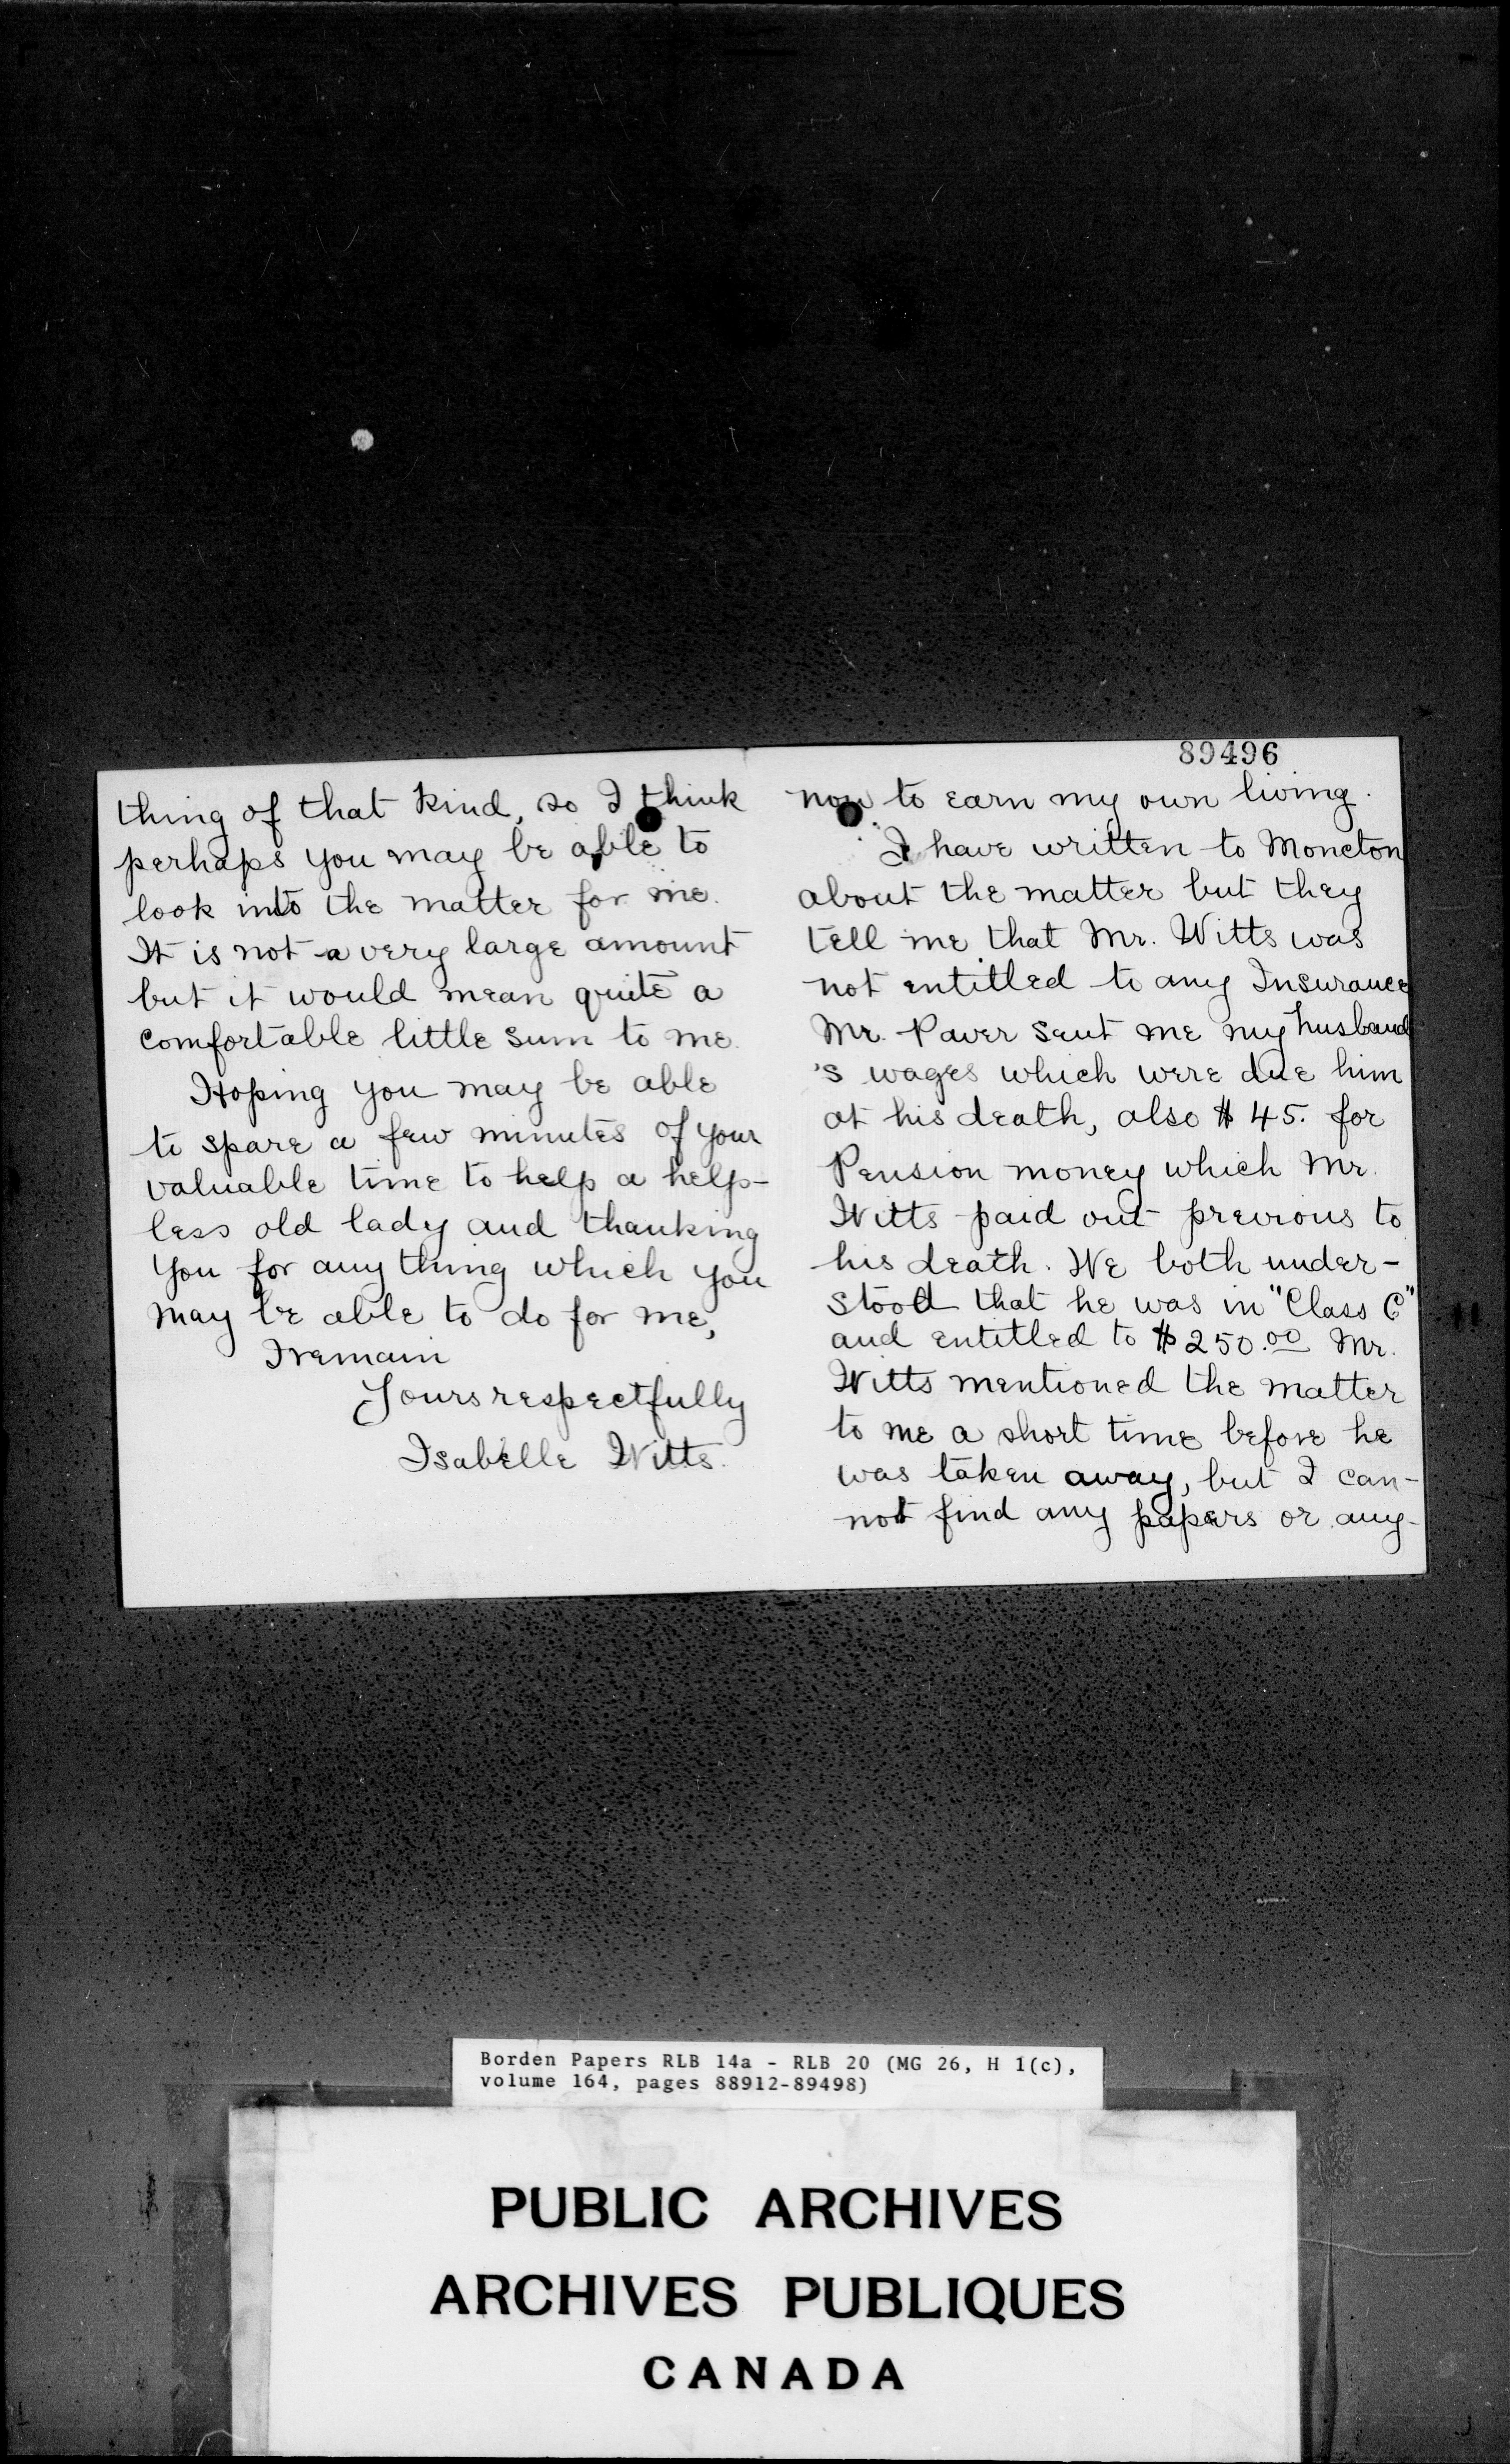 89496
now to earn my own living.
I have written to Moncton
about the matter but they
tell me that Mr. Witts was
not entitled to any Insurance
Mr. Paver sent me my husband
's wages which were due him
at his death, also $45. for
Pension money which Mr.
Witts paid out previous to
his death. We both under-
stood that he was in "Class C"
and entitled to $250.00 Mr.
Witts mentioned the matter
to me a short time before he
was taken away, but I can-
not find any papers or any-
thing of that kind, so I think
perhaps you may be able to
look into the matter for me.
It is not a very large amount
but it would mean quite a
comfortable little sum to me.
Hoping you may be able
to spare a few minutes of your
valuable time to help a help-
less old lady and thanking
you for any thing which you
may be able to do for me,
I remain
Yours respectfully
Isabelle Witts.
Borden Papers RLB 14a - RLB 20 (MG 26, H 1(c),
volume 164, pages 88912-89498)
PUBLIC ARCHIVES
ARCHIVES PUBLIQUES
CANADA